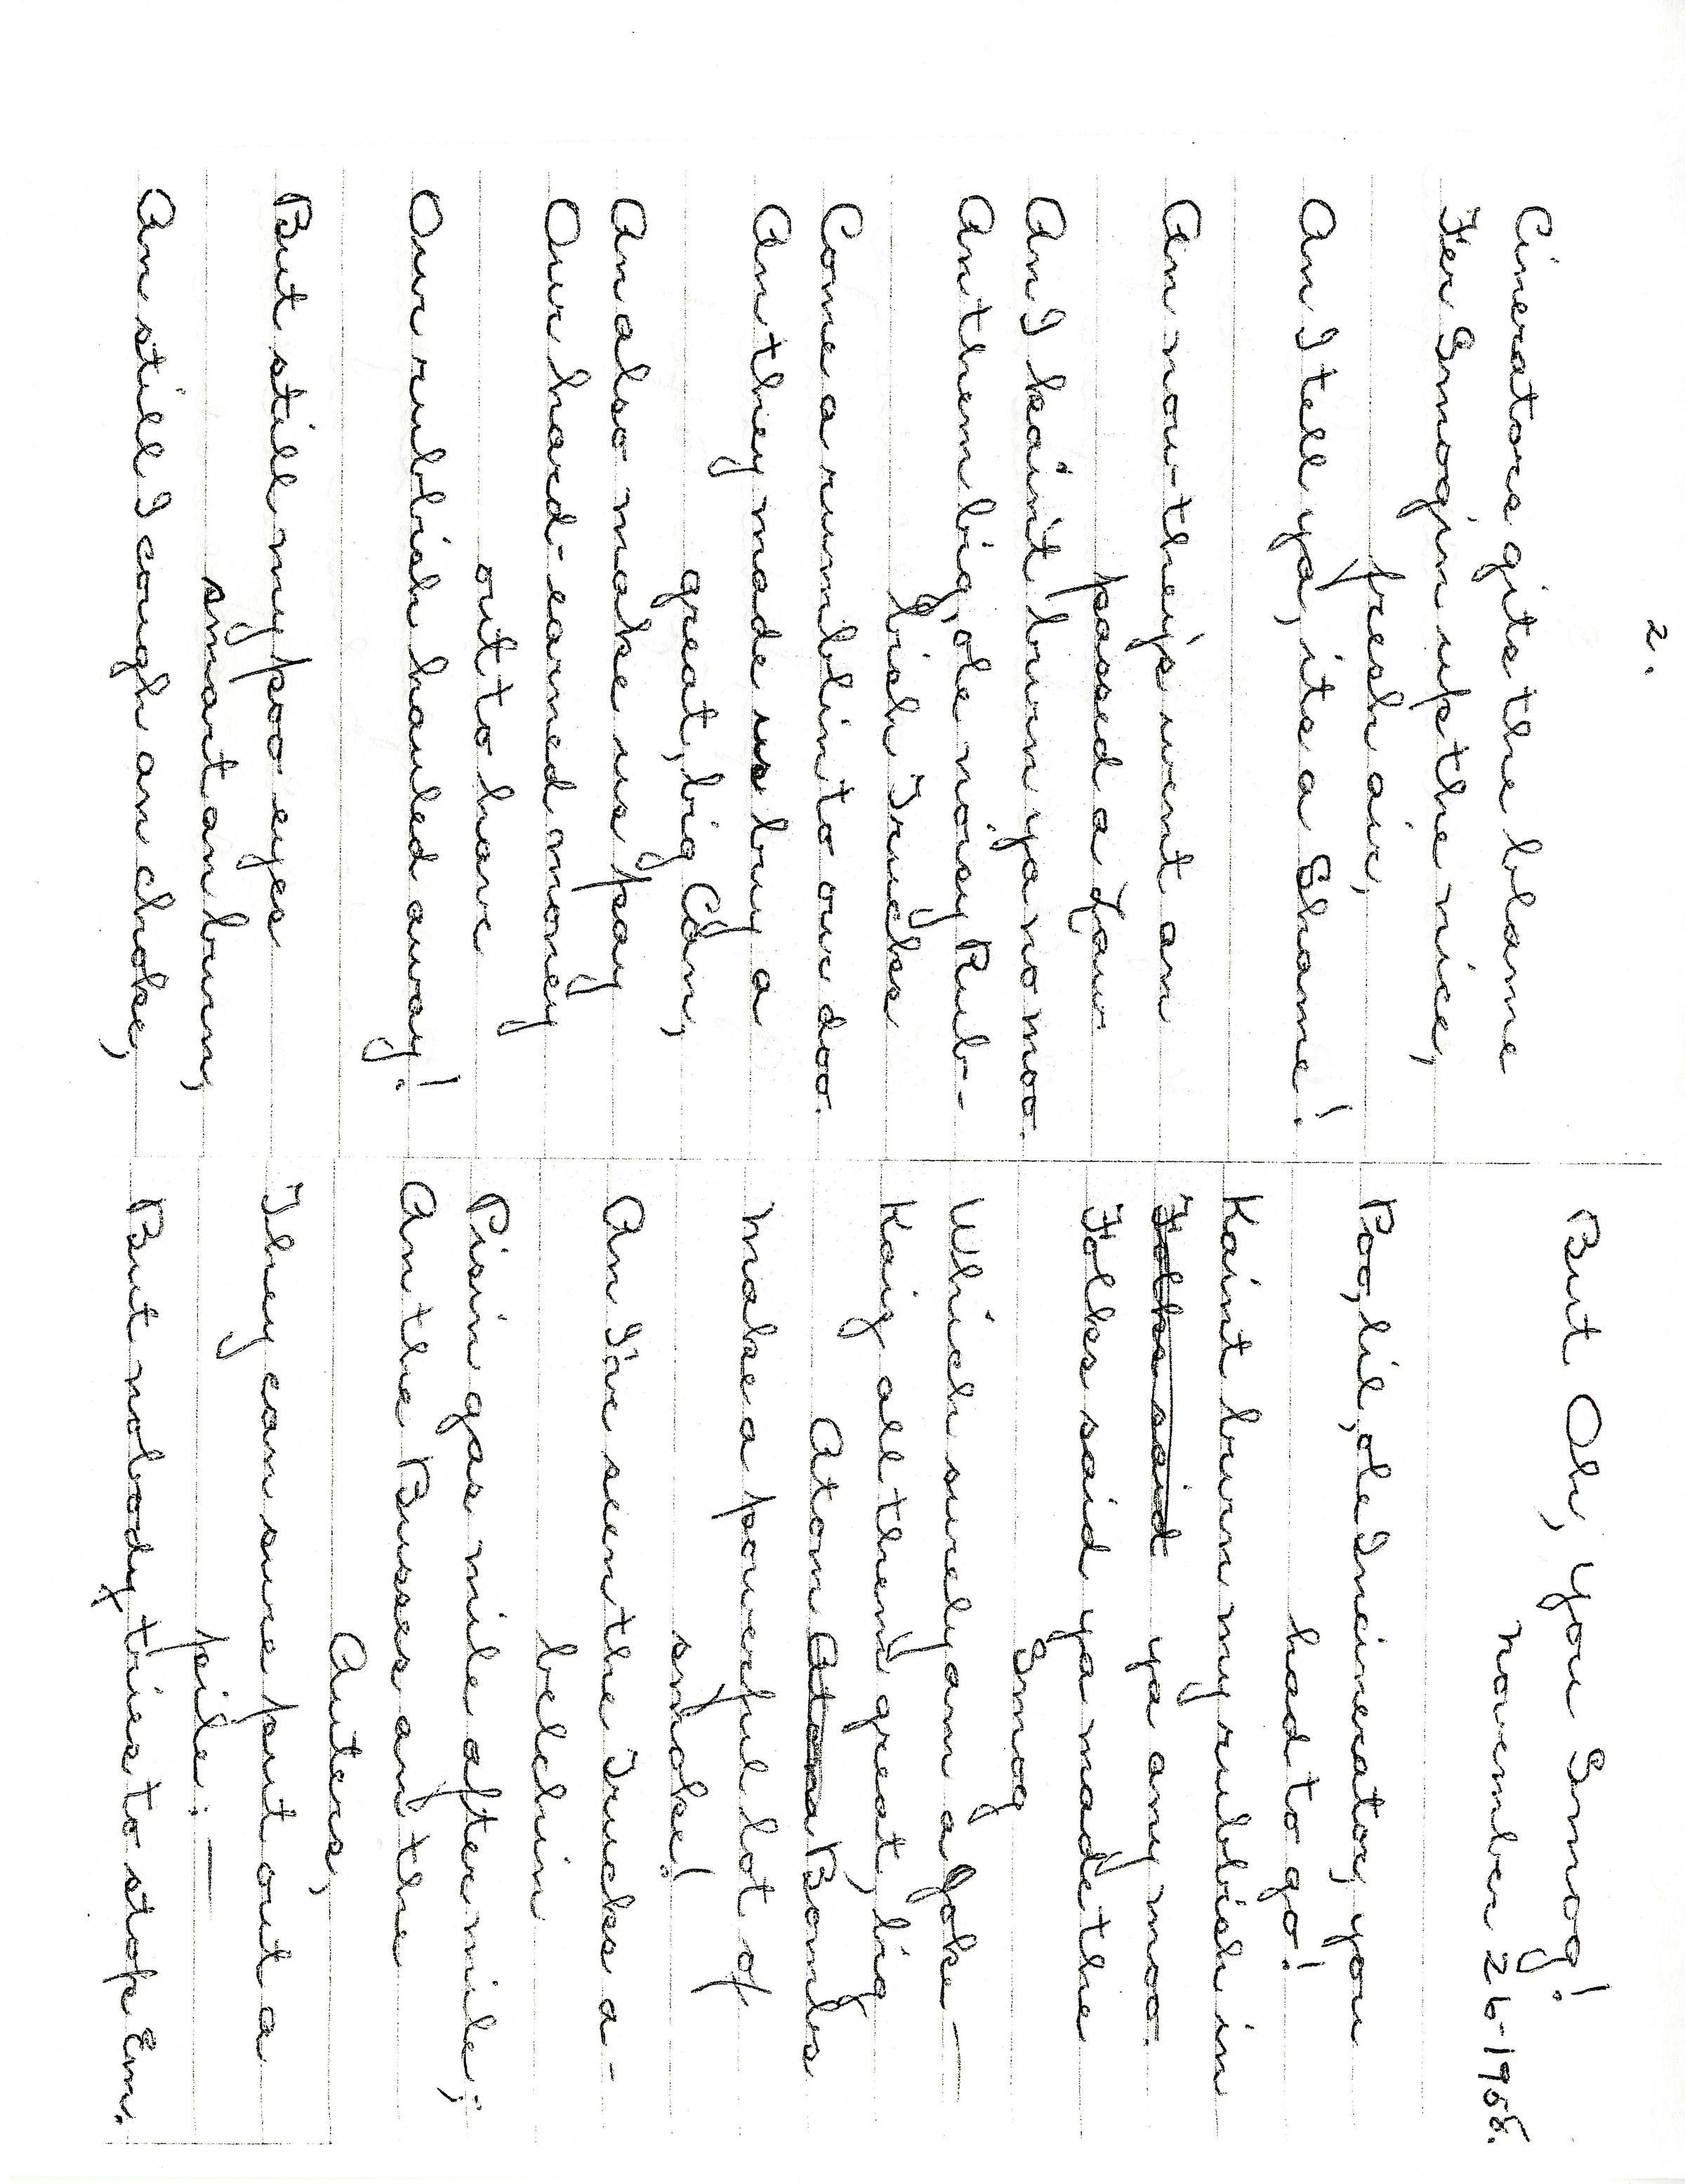 But Oh, You Smog!
November 26-1958.
Poo, lil, ole Incinerator, you
had to go!
Kaint burn my rubbish in
Folks said ya any moo.
Folks said ya made the
Smog
Which surely am a Joke —
Kaiz all them great, big
Atom Atom Bombs
Make a powerful lot of
smoke!
An I've seen the Trucks a-
belchin
Pisin gas mile after mile;
An the Busses an the
Auters,
They can sure put out a
pile: —
But nobody tries to stop Em.
2.
Cinerators gits the blame
Fer Smogin up the nice,
fresh air,
An I tell ya, its a Shame!
An now they's went an
passed a Law
An I kain't burn ya no moo.
An them big, ole noisy Rub-
bish Trucks
Come a rumblin to our doo.
An they made us buy a
great, big Can,
An also make us pay
Our hard-earned money
out to have
Our rubbish hauled away!
But still my poo eyes
smart an burn,
An still I cough an choke,